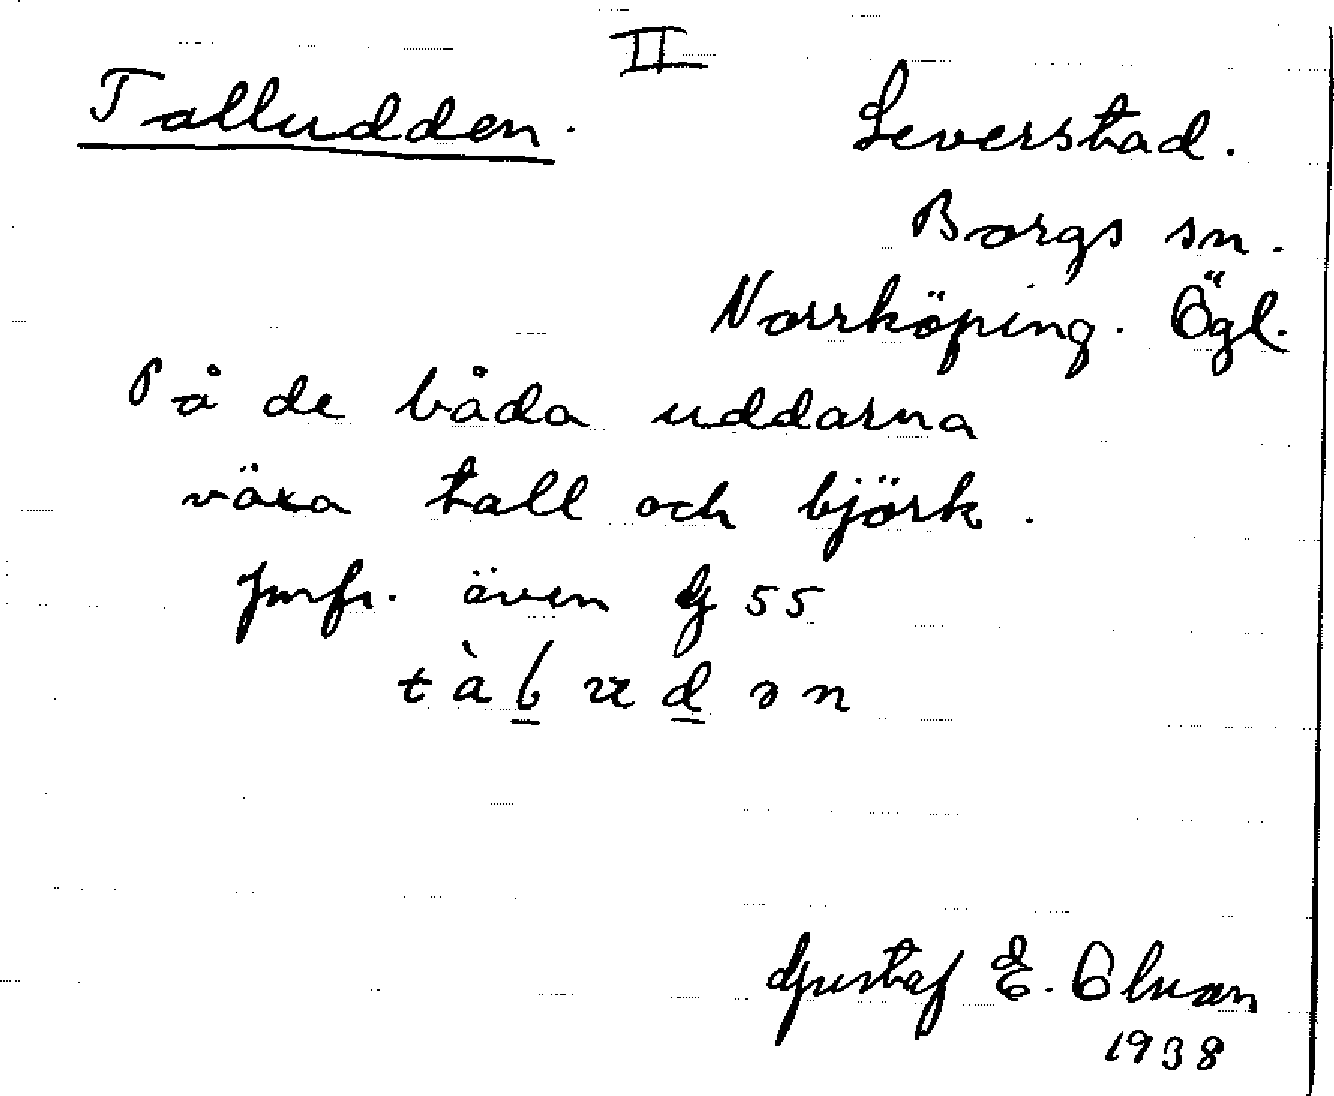 II
Talludden.
Leverstad.
Borgs sn.
Norrköping. Ögl.
På de båda uddarna
växa tall och björk.
Jmfr. även G 55
Gustaf E. Olsson
1938